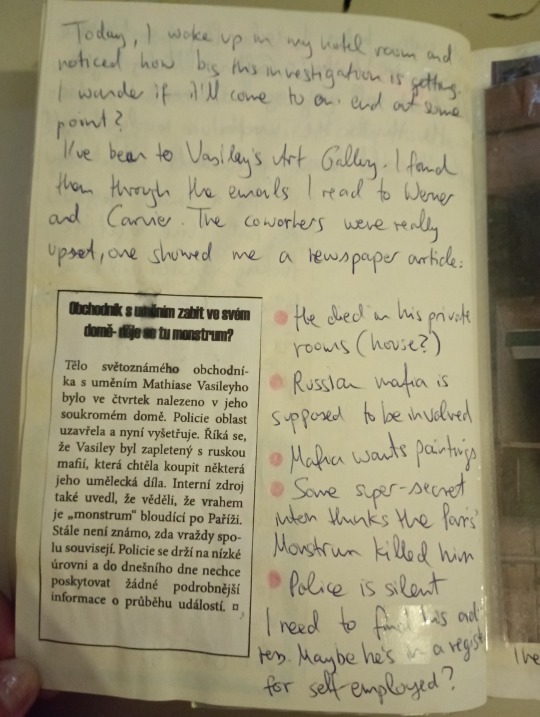 Today, I woke up in my hotel room and
noticed how big this investigation is getting.
I wunder if it'll come to an end at some
point?
I've been to Vasiley's Art Gallery. I found
them through the emails I read to Werner
and Carvier. The coworkers were really
upset, one showed me a newspaper article:
Obchodník s uměním zabit ve svém
domě- děje se tu monstrum?
Tělo světoznámého obchodní-
ka s uměním Mathiase Vasileyho
bylo ve čtvrtek nalezeno v jeho
soukromém domě. Policie oblast
uzavřela a nyní vyšetřuje. Říká se,
že Vasiley byl zapletený s ruskou
mafií, která chtěla koupit některá
jeho umělecká díla. Interní zdroj
také uvedl, že věděli, že vrahem
je „monstrum" bloudící po Paříži.
Stále není známo, zda vraždy spo-
lu souvisejí. Policie se drží na nízké
úrovni a do dnešního dne nechce
poskytovat žádné podrobnější
informace o průběhu událostí.
He died in his private
rooms (house?)
Russian mafia is
supposed to be involved
Mafia wants paintings
Some super-secret
intern thinks the Paris'
Monstrum killed him
Police is silent
I need to find his ad
ress. Maybe he's in a regist
for self-employed?